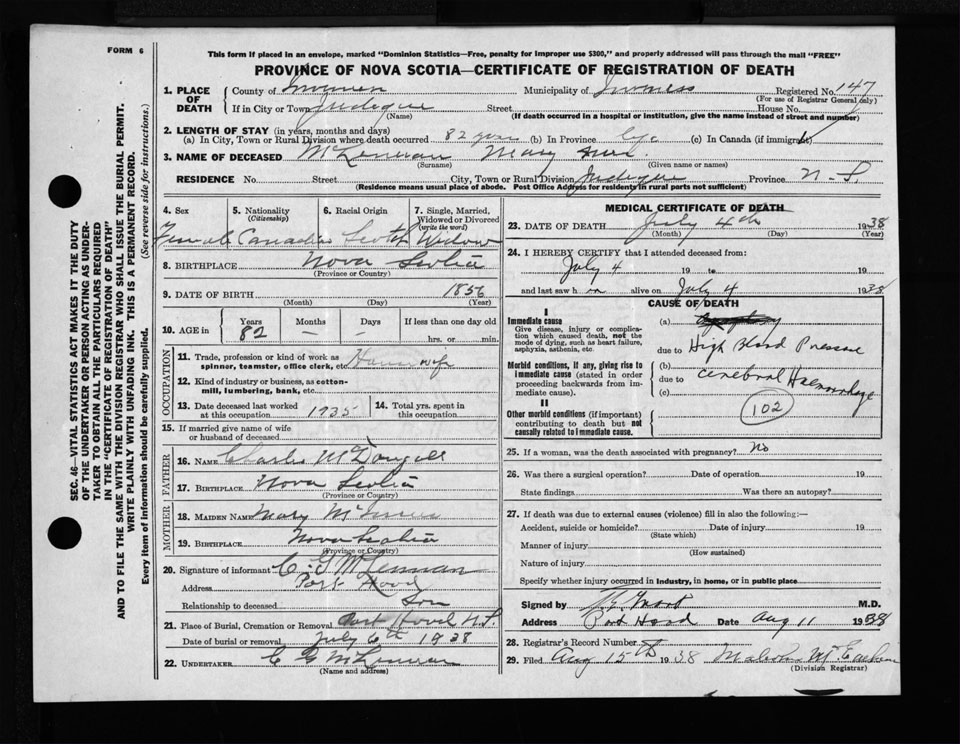 FORM 6
This form if placed in an envelope, marked "Dominion Statistics—Free, penalty for improper use $300," and properly addressed will pass through the mail "FREE"
PROVINCE OF NOVA SCOTIA—CERTIFICATE OF REGISTRATION OF DEATH
SEC. 46—VITAL STATISTICS ACT MAKES IT THE DUTY
OF THE UNDERTAKER OR PERSON ACTING AS UNDER-
TAKER TO OBTAIN ALL THE PARTICULARS REQUIRED
IN THE "CERTIFICATE OF REGISTRATION OF DEATH"
AND TO FILE THE SAME WITH THE DIVISION REGISTRAR WHO SHALL ISSUE THE BURIAL PERMIT.
WRITE PLAINLY WITH UNFADING INK. THIS IS A PERMANENT RECORD.
Every item of information should be carefully supplied. (See reverse side for instructions.)
1. PLACE OF DEATH County of Inverness Municipality of Inverness Registered No. 147
(For use of Registrar General only)
If in City or Town Judique Street House No.
(Name) (If death occurred in a hospital or institution, give the name instead of street and number)
2. LENGTH OF STAY (in years, months and days)
(a) In City, Town or Rural Division where death occurred 82 years (b) In Province Life (c) In Canada (if immigrant)
3. NAME OF DECEASED McLennan Mary Ann
(Surname) (Given name or names)
RESIDENCE No. Street City, Town or Rural Division Judique Province N.S.
(Residence means usual place of abode. Post Office Address for residents in rural parts not sufficient)
4. Sex 5. Nationality (Citizenship) 6. Racial Origin 7. Single, Married, Widowed or Divorced (write the word)
Female Canadian Scotch Widow
8. BIRTHPLACE Nova Scotia
(Province or Country)
9. DATE OF BIRTH 1856
(Month) (Day) (Year)
10. AGE in Years Months Days If less than one day old
82 – – hrs. or min.
OCCUPATION
11. Trade, profession or kind of work as spinner, teamster, office clerk, etc. Housewife
12. Kind of industry or business, as cotton-mill, lumbering, bank, etc.
13. Date deceased last worked at this occupation 1935 14. Total yrs. spent in this occupation
15. If married give name of wife or husband of deceased
FATHER
16. NAME Charles McDougall
17. BIRTHPLACE Nova Scotia
(Province or Country)
MOTHER
18. MAIDEN NAME Mary McInnis
19. BIRTHPLACE Nova Scotia
(Province or Country)
20. Signature of informant C. G McLennan
Address Port Hood
Relationship to deceased Son
21. Place of Burial, Cremation or Removal Port Hood N.S.
Date of burial or removal July 6th 1938
22. UNDERTAKER C G McLennan
(Name and address)
MEDICAL CERTIFICATE OF DEATH
23. DATE OF DEATH July 4th 1938
(Month) (Day) (Year)
24. I HEREBY CERTIFY that I attended deceased from:
July 4 19 to 19
and last saw h er alive on July 4 1938
CAUSE OF DEATH
I
Immediate cause
Give disease, injury or complication which caused death, not the mode of dying, such as heart failure, asphyxia, asthenia, etc.
(a)
due to High Blood Pressure
Morbid conditions, if any, giving rise to immediate cause (stated in order proceeding backwards from immediate cause).
(b)
due to Cerebral Haemorrhage
(c)
102
II
Other morbid conditions (if important) contributing to death but not causally related to immediate cause.
25. If a woman, was the death associated with pregnancy? No
26. Was there a surgical operation? Date of operation 19
State findings Was there an autopsy?
27. If death was due to external causes (violence) fill in also the following:—
Accident, suicide or homicide? Date of injury 19
(State which)
Manner of injury
(How sustained)
Nature of injury
Specify whether injury occurred in Industry, in home, or in public place
Signed by M.D.
Address Port Hood Date Aug 11 1938
28. Registrar's Record Number
29. Filed Aug 15th 1938 Malcolm McEachern
(Division Registrar)